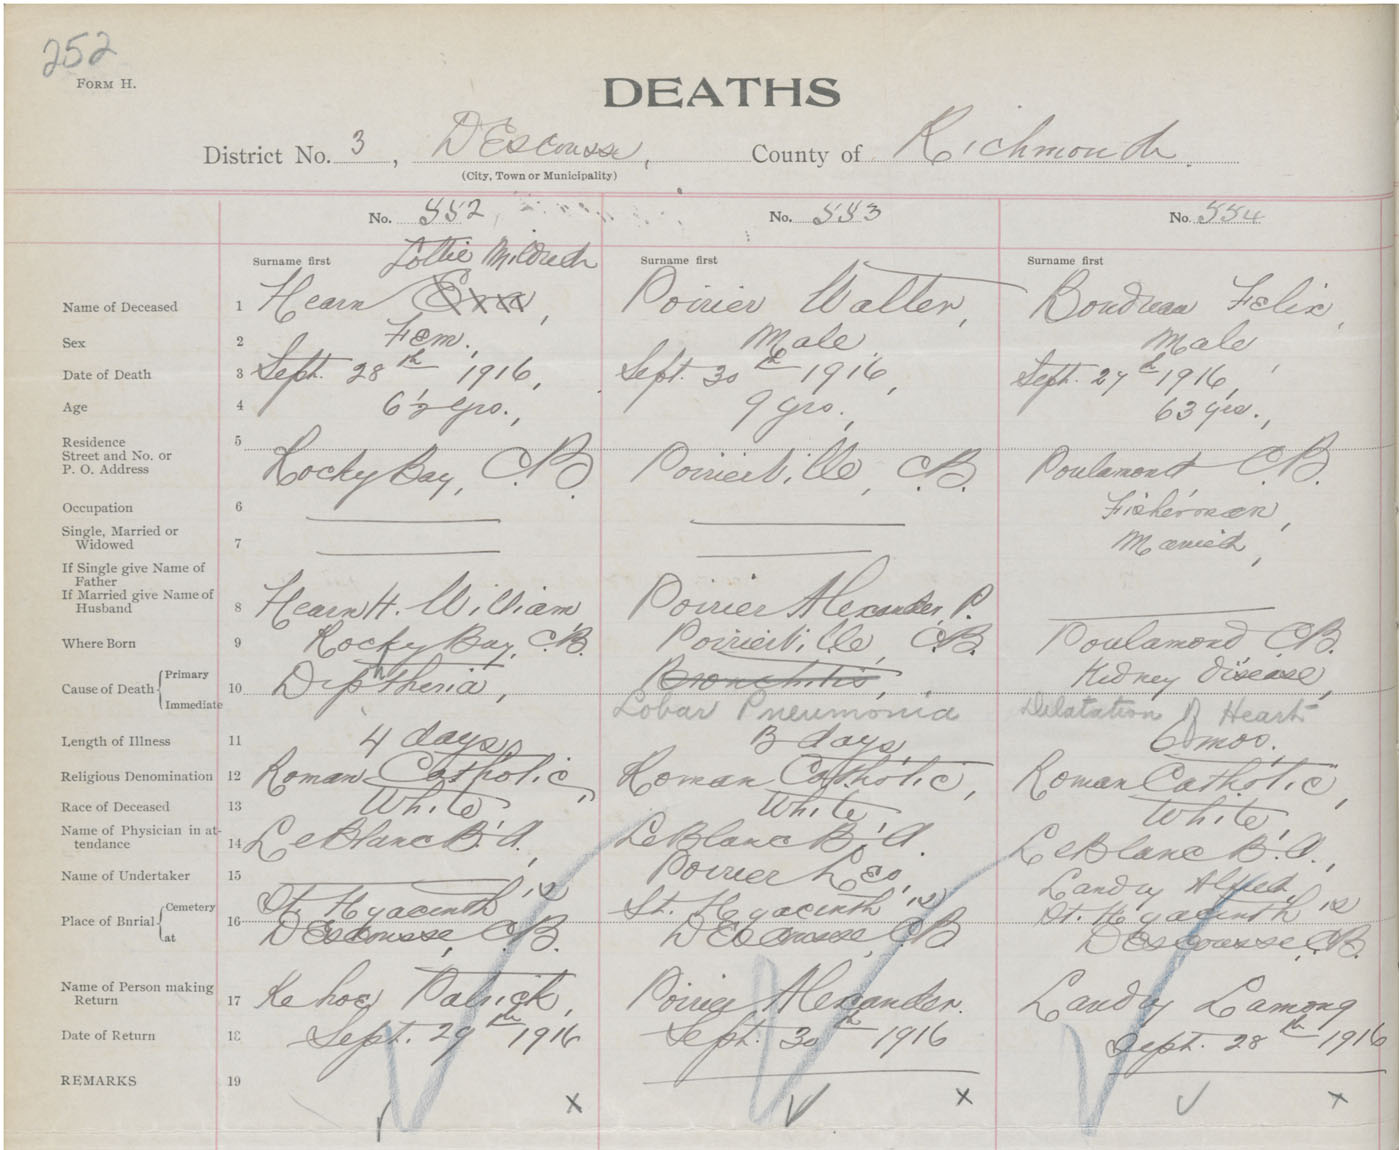 252
FORM H.
DEATHS
District No. 3, D'Escousse, County of Richmond.
(City, Town or Municipality)
No. 552 No. 553 No. 554
Lottie Mildred
Surname first Surname first Surname first
Name of Deceased 1 Hearn, Poirier Walter, Boudreau Felix,
Sex 2 Fem., Male, Male,
Date of Death 3 Sept. 28th 1916, Sept. 30th 1916, Sept. 27th 1916,
Age 4 6½ yrs., 9 yrs., 63 yrs.,
Residence 5
Street and No. or
P. O. Address Rocky Bay, C.B. Poirierville, C.B. Poulamond C.B.
Occupation 6 Fisherman,
Single, Married or
Widowed 7 Married,
If Single give Name of
Father
If Married give Name of
Husband 8 Hearn H. William Poirier Alexander P.
Where Born 9 Rocky Bay, C.B. Poirierville, C.B. Poulamond C.B.
Cause of Death Primary 10 Diphtheria, Bronchitis, Kidney Disease,
Immediate Lobar Pneumonia Dilatation of Heart
Length of Illness 11 4 days, 3 days, 6 mos.
Religious Denomination 12 Roman Catholic, Roman Catholic, Roman Catholic,
Race of Deceased 13 White, White, White,
Name of Physician in at-
tendance 14 LeBlanc B. A., LeBlanc B. A. LeBlanc B. A.,
Name of Undertaker 15 Poirier Leo, Landry Alfred,
Place of Burial Cemetery 16 St. Hyacinth's St. Hyacinth's St. Hyacinth's
at D'Escousse, C.B. D'Escousse, C.B. D'Escousse, C.B.
Name of Person making
Return 17 Kehoe Patrick, Poirier Alexander. Landry Lamong
Date of Return 18 Sept. 29th 1916 Sept. 30th 1916 Sept. 28th 1916
REMARKS 19
x x x